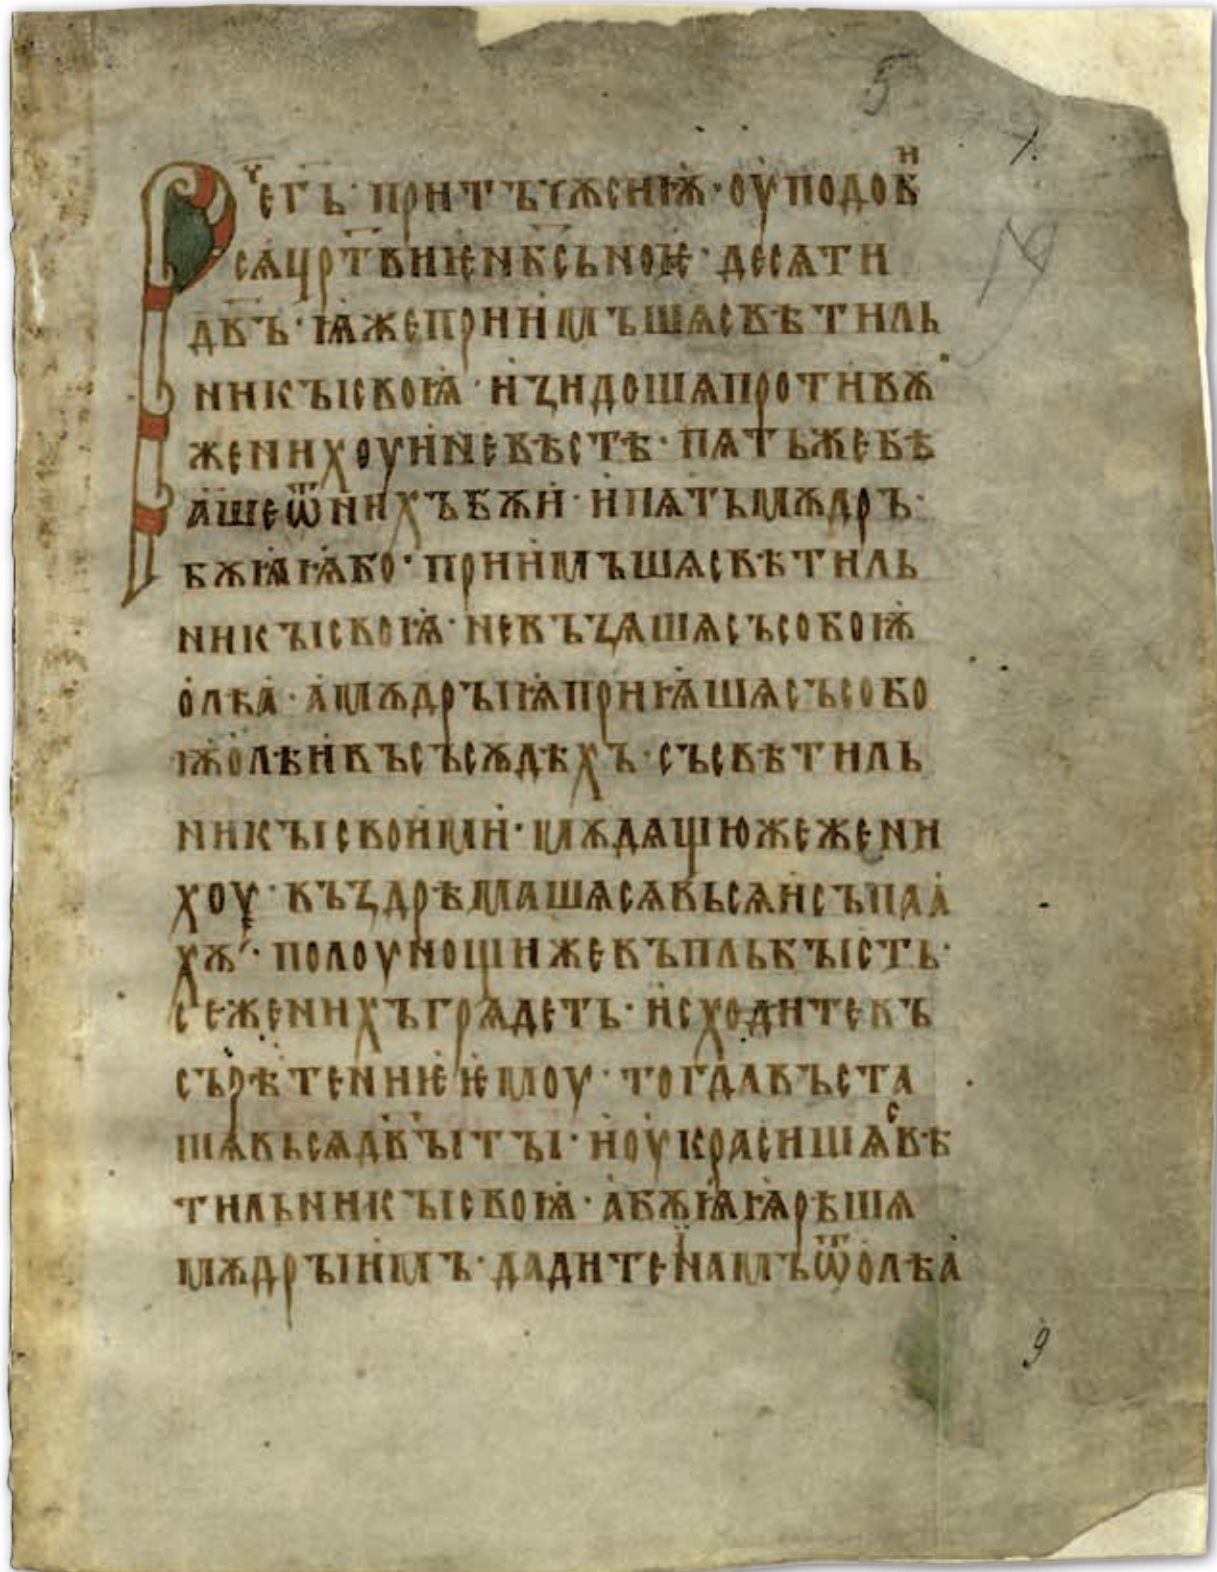 Рече гь · притъчѫ сиѭ · оуподоби
сѧ цртвиѥ нбсьноѥ · десѧти
двъ · ѩже приимъшѧ свѣтиль
никꙑ своѩ · изидошѧ противѫ
женихоу и невѣстѣ · пѧть же бѣ
аше ѿ нихъ бѫи · и пѧть мѫдръ ·
бѫѩѩ бо · приимъшѧ свѣтиль
никꙑ своѩ · не въꙁѧшѧ съ собоѭ
олѣа · а мѫдрꙑѩ приѩшѧ съ собо
ѭ олѣи въ съсѫдѣхъ · съ свѣтиль
никꙑ своими · мѫдѧщю же жени
хоу · въꙁдрѣмашѧ сѧ вьсѧ и съпаа
хѫ · полоунощи же въпль бꙑсть ·
се женихъ грѧдеть · исходите въ
сърѣтениѥ ѥмоу · тогда въста
шѧ вьсѧ двꙑ тꙑ · и оукрасишѧ свѣ
тильникꙑ своѩ · а бѫѩѩ рѣшѧ
мѫдрꙑимъ · дадите намъ ѿ олѣа
5
7.
19
9